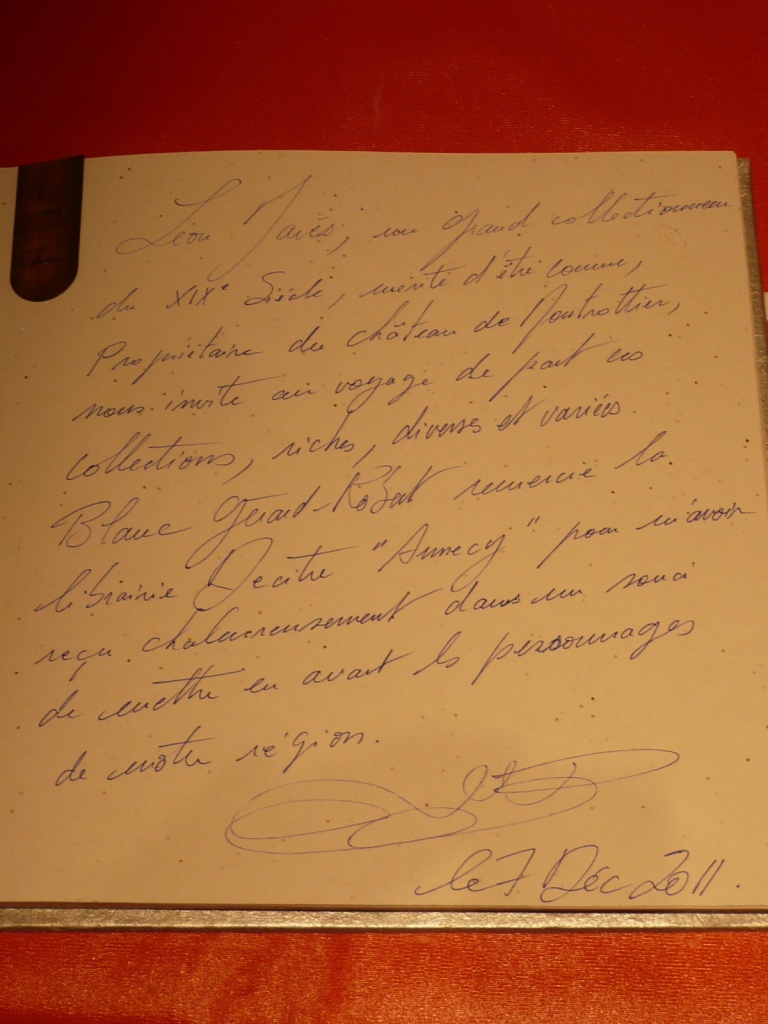 Léon Marès, un grand collectionneur
du XIXe Siècle, mérite d'être connu,
Propriétaire du château de Montrottier,
nous invite au voyage de part ses
collections, riches, diverses et variées.
Blanc Gérard-Robert remercie la
librairie Decitre "Annecy" pour m'avoir
reçu chaleureusement dans un souci
de mettre en avant les personnages
de notre région.
le 7 Déc 2011.